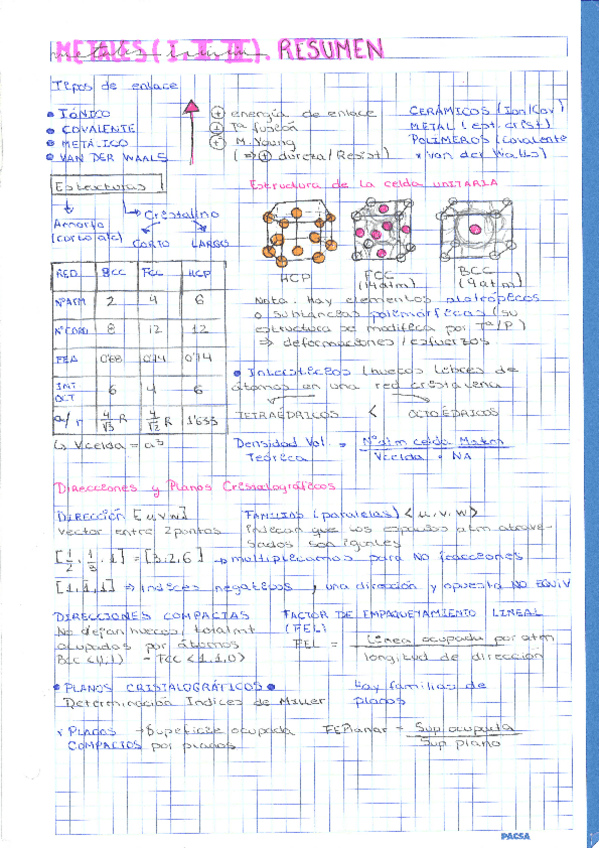 METALES (I-II-III). RESUMEN
Tipos de enlace
• IÓNICO
• COVALENTE
• METÁLICO
• VAN DER WAALS
⊕ energía de enlace
⊕ Tª fusión
⊕ M. Young
(⇒ ⊕ dureza/Resist)
CERÁMICOS (Ion/Cov)
METAL (est. crist)
POLÍMEROS (Covalente
+ van der Walls)
Estructuras
Amorfo
(corto alc)
Cristalino
CORTO LARGO
Estructura de la celda UNITARIA
HCP
FCC
(14 atm)
BCC
(9 atm)
RED BCC FCC HCP
NºATM 2 4 6
NºCORD 8 12 12
FEA 0'68 0'74 0'74
INT OCT 6 4 6
a/r 4/√3 R 4/√2 R 1'633
↳ Vcelda = a³
Nota. Hay elementos alotrópicos
o substancias polimórficas (su
estructura se modifica por Tª/P)
⇒ deformaciones/esfuerzos
• Intersticios (huecos libres de
átomos en una red cristalina
TETRAÉDRICOS < OCTOÉDRICOS
Densidad Vol. Teórica = Nºatm celda · Matm / Vcelda · NA
Direcciones y Planos Cristalográficos
DIRECCIÓN [u,v,w]
vector entre 2 puntos
FAMILIAS (paralelas) <u,v,w>
indican que los espacios atm atrave-
sados son iguales
[1/2, 1/3, 1] = [3,2,6] → multiplicamos para NO fracciones
[1,1,1] ⇒ índices negativos, una dirección y opuesta NO EQUIV
DIRECCIONES COMPACTAS
No dejan huecos, totalmt
ocupados por átomos
BCC <1,1,1> - FCC <1,1,0>
FACTOR DE EMPAQUETAMIENTO LINEAL
(FEL)
FEL = Línea ocupada por atm / longitud de dirección
• PLANOS CRISTALOGRÁFICOS •
Determinación Indices de Miller
Hay familias de
planos
PLANOS COMPACTOS → Superficie ocupada
por planos
FEPlanar = Sup ocupada / Sup plano
PACSA